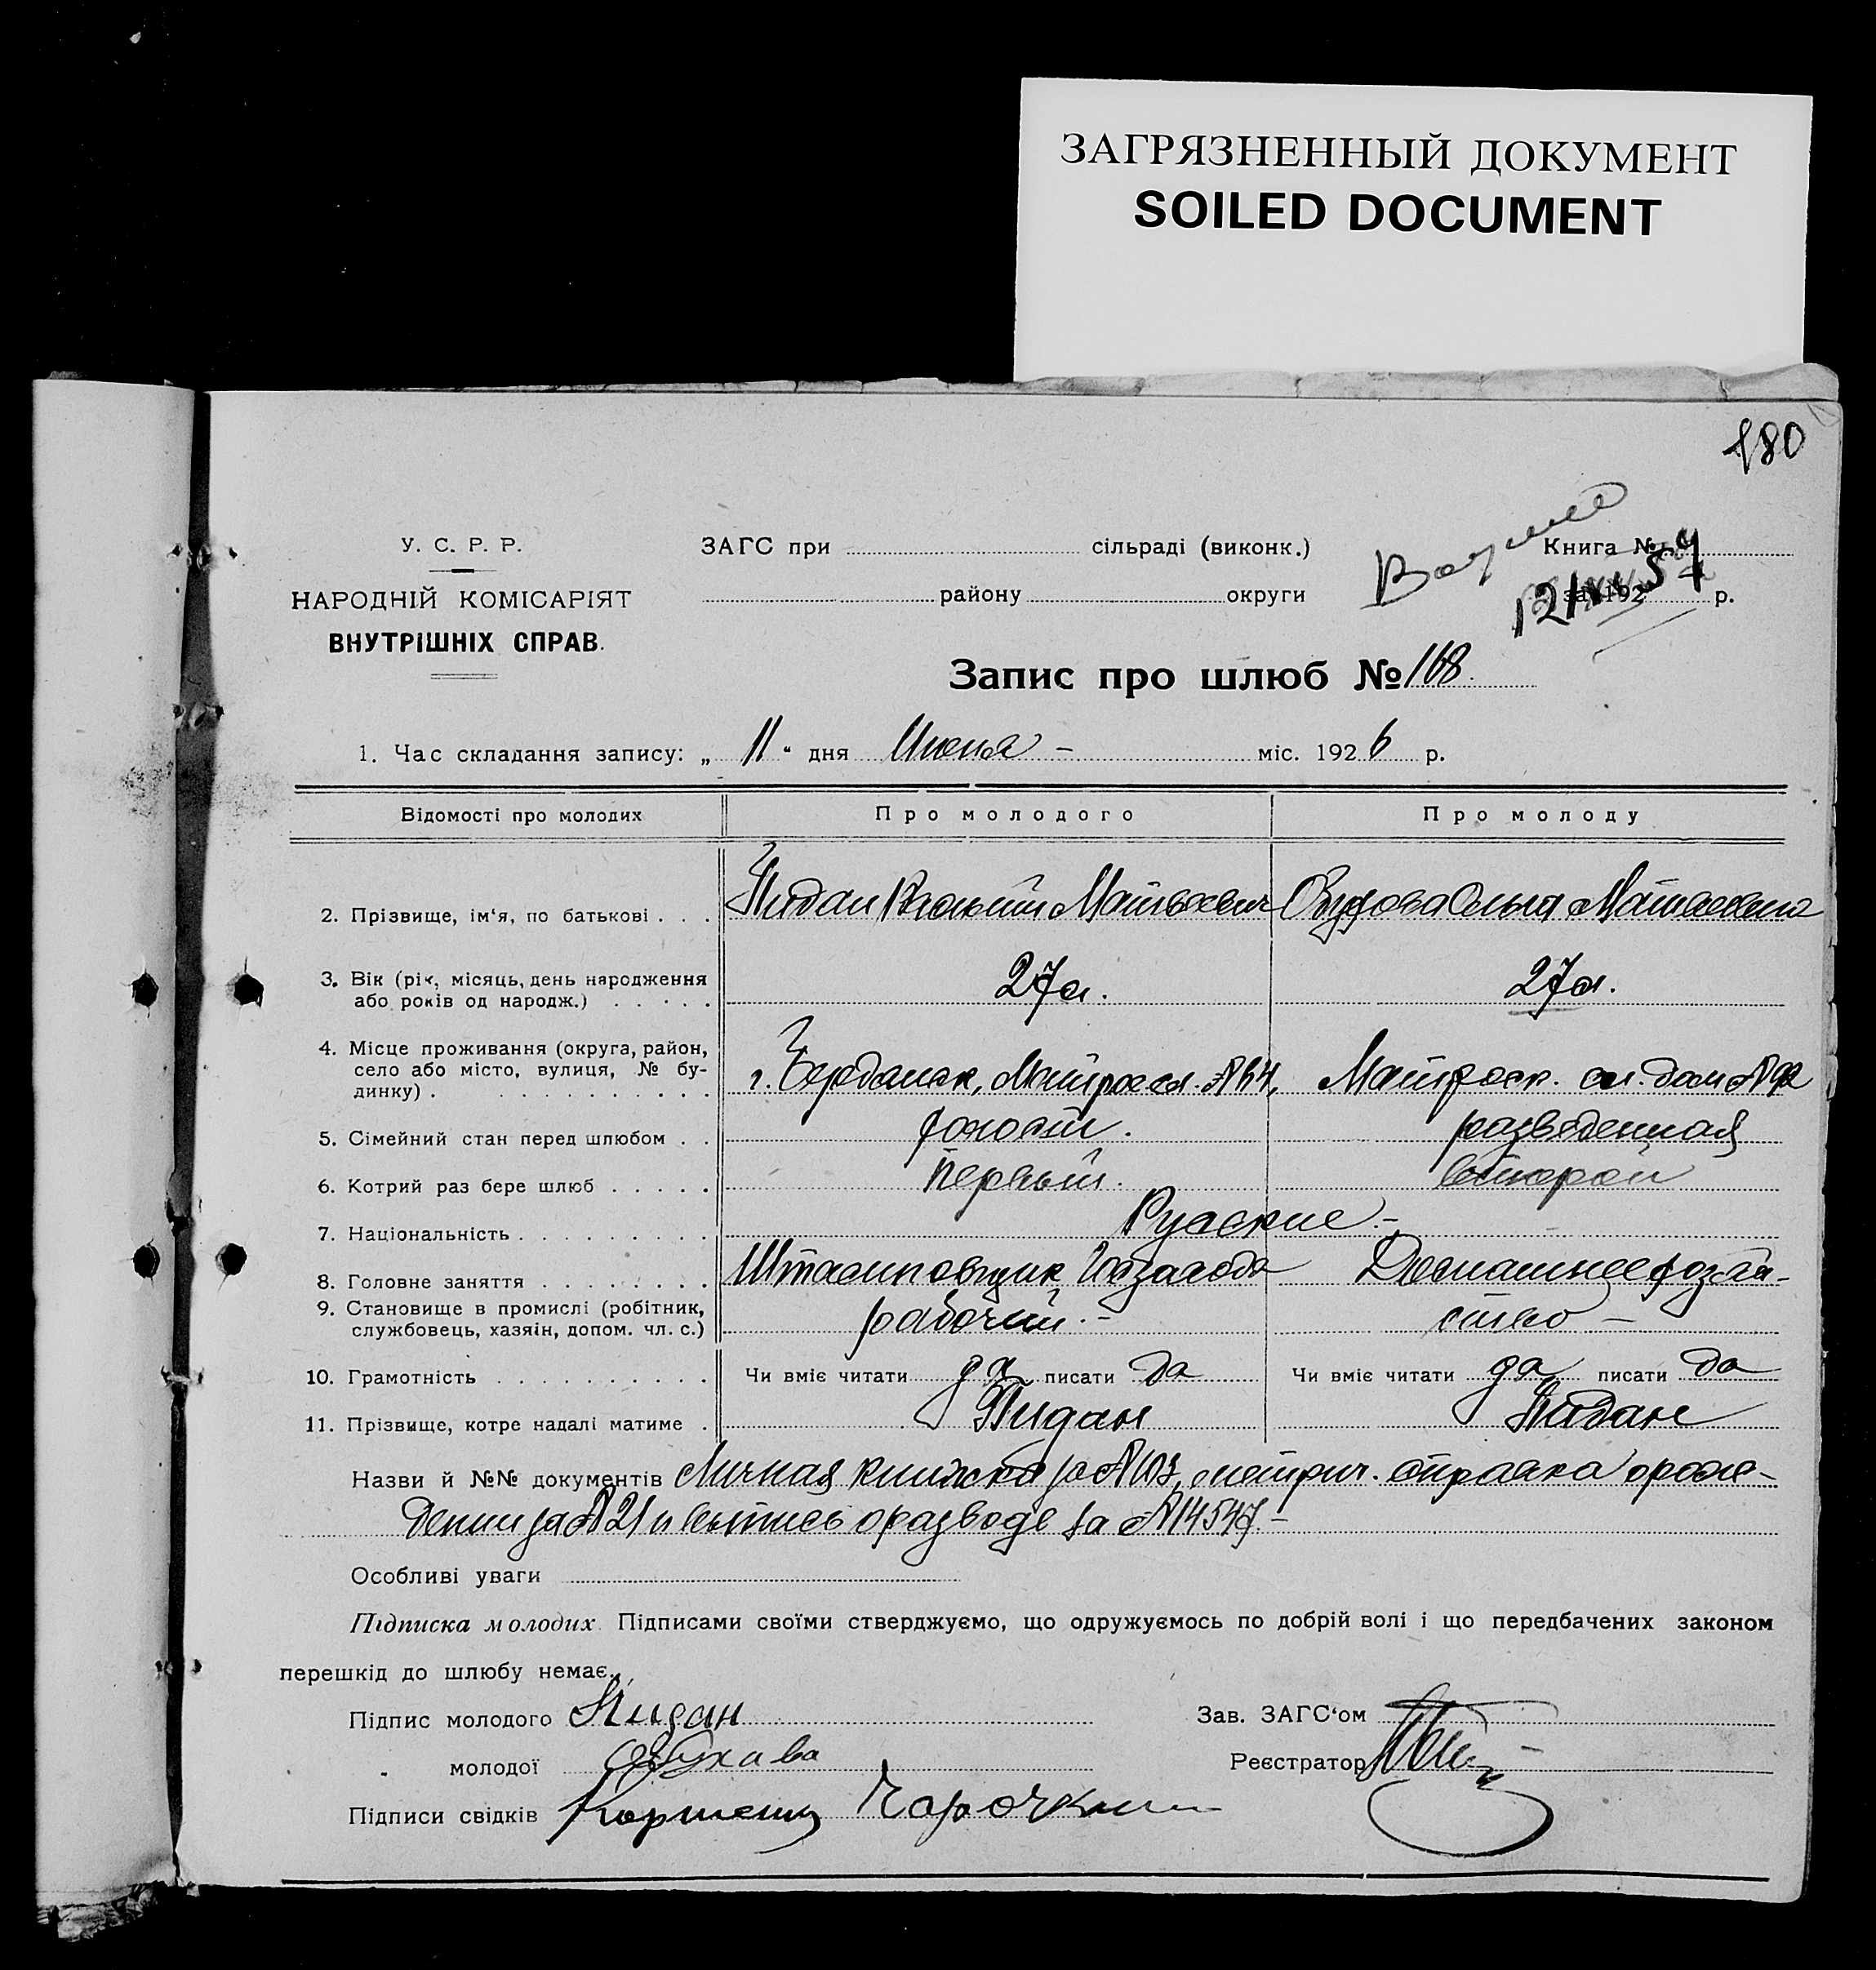 ЗАГРЯЗНЕННЫЙ ДОКУМЕНТ
SOILED DOCUMENT
180
У. С. Р. Р.
НАРОДНІЙ КОМІСАРІЯТ
ВНУТРІШНІХ СПРАВ.
ЗАГС при сільраді (виконк.)
району округи
Книга №
за 192 р.
Запис про шлюб № 168.
1. Час складання запису: „ 11 “ дня Июня – міс. 1926 р.
Відомості про молодих Про молодого Про молоду
2. Прізвище, ім‘я, по батькові . . . Пидан Матвеевич Ольга Матвеевна
3. Вік (рік, місяць, день народження
або років од народж.) . . . . . 27 л. 27 л.
4. Місце проживання (округа, район,
село або місто, вулиця, № бу-
динку) . . . . . . . . . . . г. Бердянск, Матросск. Матросск. сл. дом №
5. Сімейний стан перед шлюбом . . холост. разведенная
6. Котрий раз бере шлюб . . . . . Первый. второй
7. Національність . . . . . . . . . Русские. –
8. Головне заняття . . . . . . . . Штамповщик Госзавода Домашнее хозяй-
9. Становище в промислі (робітник,
службовець, хазяїн, допом. чл. с.) рабочий. – ство –
10. Грамотність . . . . . . . . . . Чи вміє читати да писати да Чи вміє читати да писати да
11. Прізвище, котре надалі матиме . Пидан Пидан
Назви й №№ документів Личная книжка за № 103, метрич. справка о рож-
дении за № 21 и выпись о разводе за № 14547. –
Особливі уваги
Підписка молодих Підписами своїми стверджуємо, що одружуємось по добрій волі і що передбачених законом
перешкід до шлюбу немає.
Підпис молодого Пидан Зав. ЗАГС‘ом
„ молодої Реєстратор
Підписи свідків